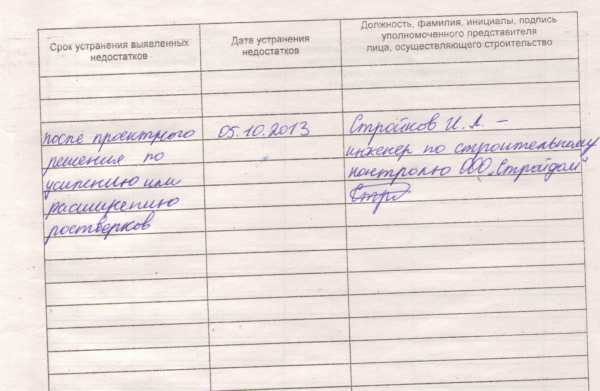 Срок устранения выявленных
недостатков
Дата устранения
недостатков
Должность, фамилия, инициалы, подпись
уполномоченного представителя
лица, осуществляющего строительство
после проектного
решения по
усилению или
расширению
ростверков
05.10.2013
Стройков И. А. –
инженер по строительному
контролю ООО „Стройдом"
Стро